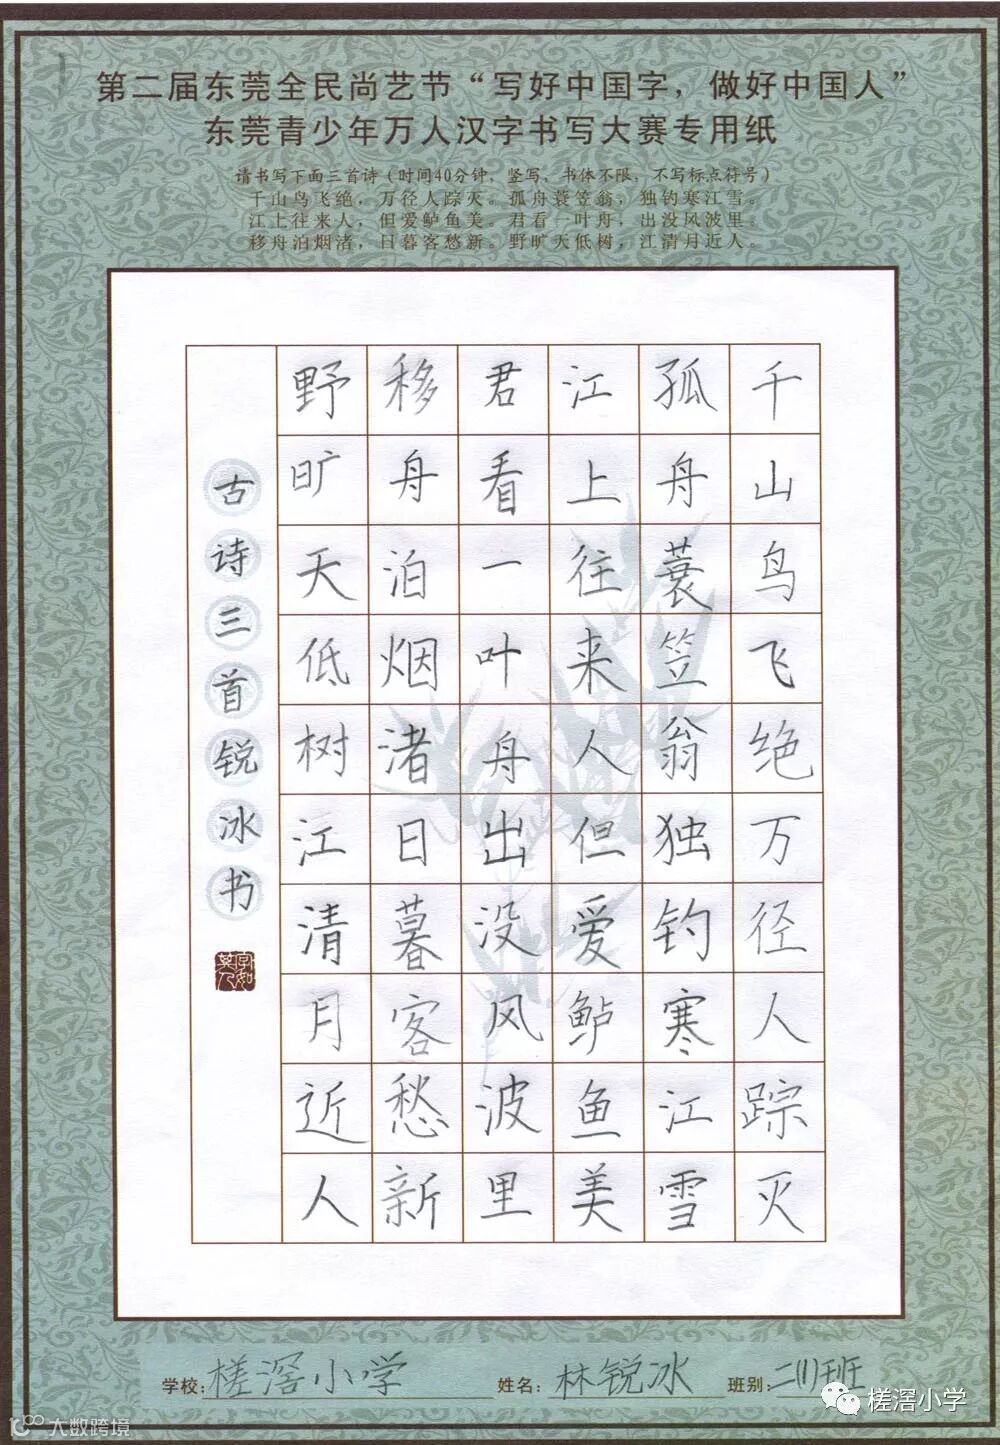 第二届东莞全民尚艺节“写好中国字，做好中国人”
东莞青少年万人汉字书写大赛专用纸
请书写下面三首诗（时间40分钟，竖写，书体不限，不写标点符号）
千山鸟飞绝，万径人踪灭。孤舟蓑笠翁，独钓寒江雪。
江上往来人，但爱鲈鱼美。君看一叶舟，出没风波里。
移舟泊烟渚，日暮客愁新。野旷天低树，江清月近人。
千山鸟飞绝万径人踪灭
孤舟蓑笠翁独钓寒江雪
江上往来人但爱鲈鱼美
君看一叶舟出没风波里
移舟泊烟渚日暮客愁新
野旷天低树江清月近人
古诗三首锐冰书
学校：槎滘小学
姓名：林锐冰
班别：二(1)班
槎滘小学
大数跨境